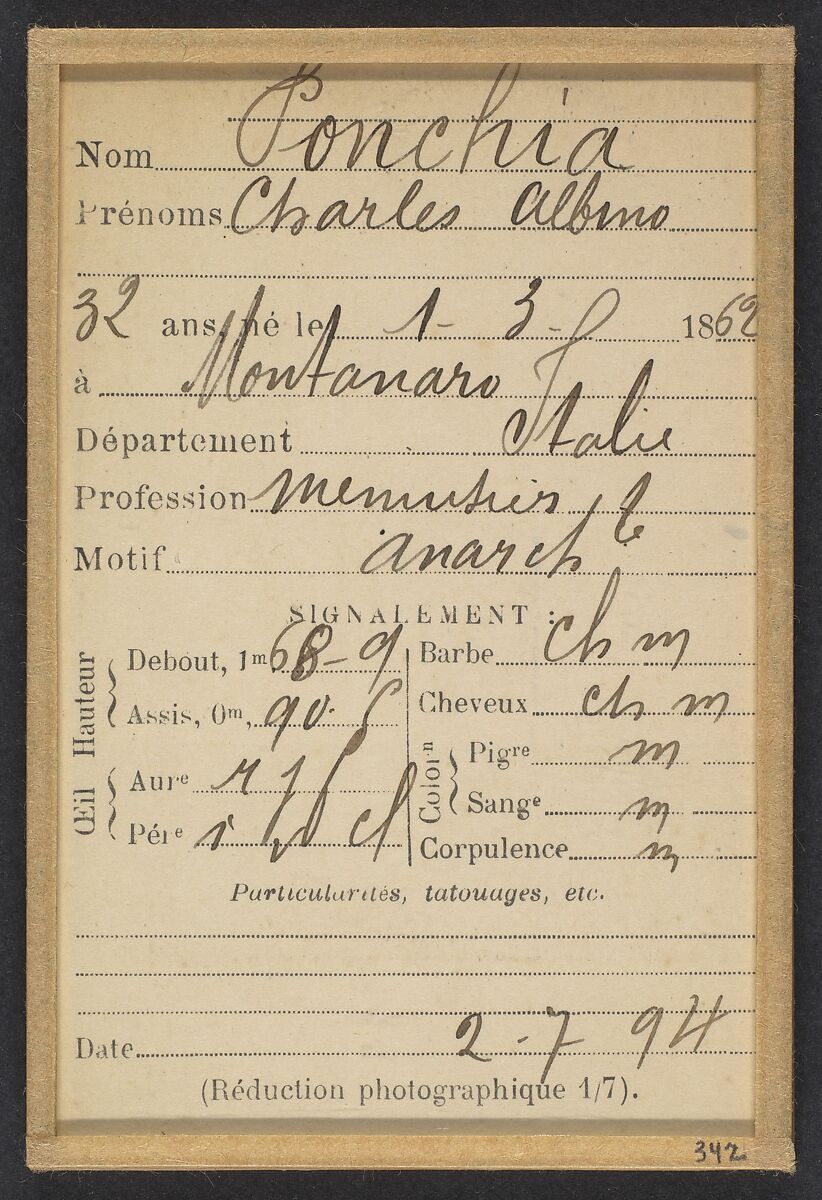 Nom Ponchia
Prénoms Charles Albino
32 ans, né le 1 - 3 - 1862
à Montanaro
Département Italie
Profession Menuisier
Motif anarch te
SIGNALEMENT :
Hauteur
Debout, 1m, 68-9
Assis, 0m, 90.
Œil
Aure
Pére
Barbe ch m
Cheveux ch m
Colorn
Pigre m
Sange m
Corpulence m
Particularités, tatouages, etc.
Date 2 - 7 94
(Réduction photographique 1/7).
342